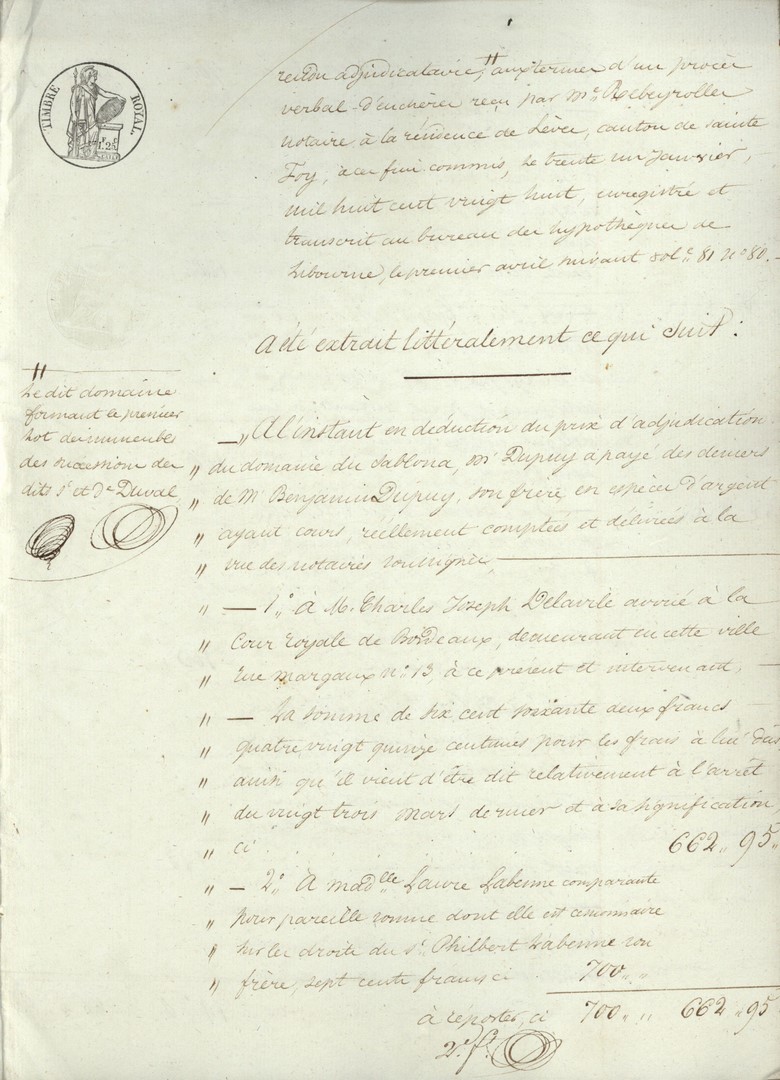 TIMBRE ROYAL.
1 F. 25 C.
rendu adjudicataire, " aux termes d'un procès
verbal d'enchères reçu par Mc. Rebeyrolles
notaire à la résidence de Lèves, canton de Sainte
Foy, à ces fins commis, le trente un Janvier,
mil huit cent vingt huit, enregistré et
transcrit au bureau des hypothèques de
Libourne, le premier avril suivant vol.e 81 n.o 80.
A été extrait littéralement ce qui suit :
"
Le dit domaine
formant le premier
Lot des immeubles
des successions des
dits S.r et D.e Duval
— „ A l'instant en déduction du prix d'adjudication
„ du domaine du Sablona, M.r Dupuy a payé des deniers
„ de M.r Benjamin Dupuy, son frère, en espèces d'argent
„ ayant cours, réellement comptées et délivrées à la
„ vue des notaires soussignés,
„ — 1.o à M. Charles Joseph Delavile avoué à la
„ Cour royale de Bordeaux, demeurant en cette ville
„ Rue margaux n.o 13, à ce présent et intervenant, —
„ — La somme de six cent soixante deux francs
„ quatre vingt quinze centimes pour les frais à lui dus
„ ainsi qu'il vient d'être dit relativement à l'arrêt
„ du vingt trois mars dernier et à sa signification,
„ ci . . . . . 662 „ 95 „
„ — 2.o A mad.lle Laure Labenne comparante
„ pour pareille somme dont elle est cessionnaire
„ sur les droits du S.r Philbert Labenne son
„ frère, sept cents francs ci . 700 „ „
à reporter, ci 700 „ „ 662 „ 95
2.e f.o